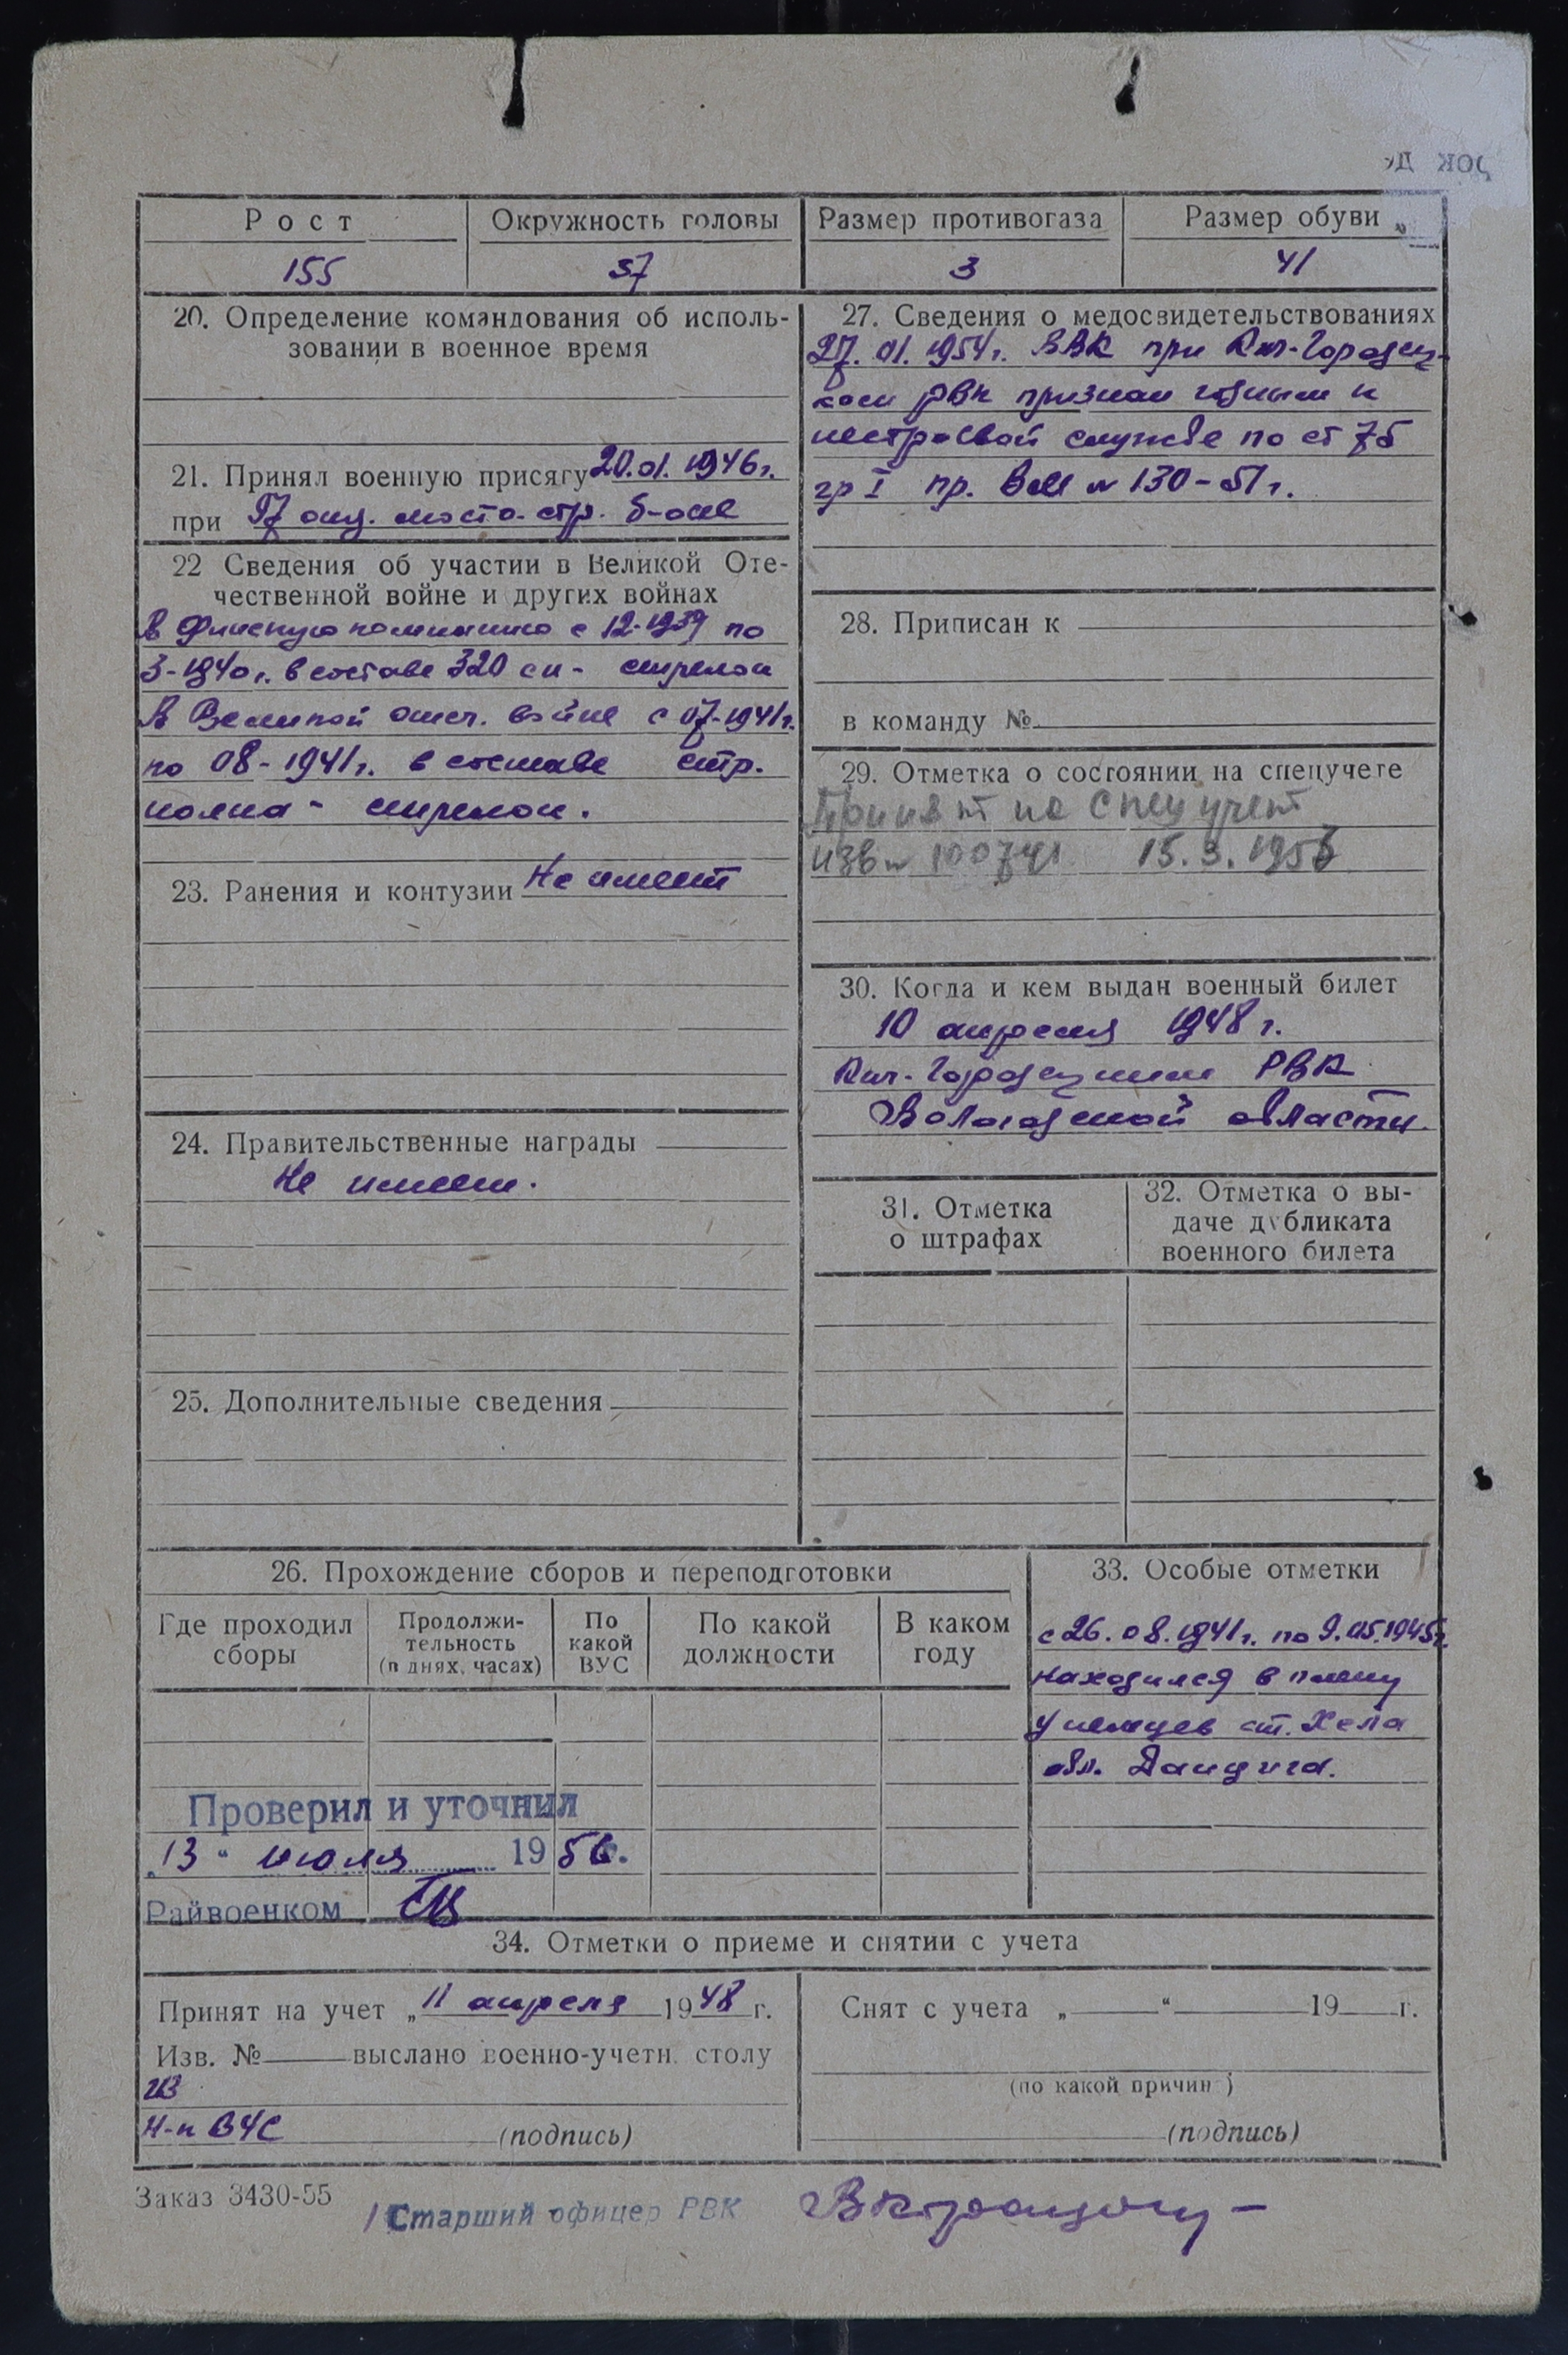 Рост
Окружность головы
Размер противогаза
Размер обуви
155
57
3
41
20. Определение командования об исполь-
зовании в военное время
21. Принял военную присягу 20.01.1946г.
при 97 отд. мосто-стр. б-оне
22 Сведения об участии в Великой Оте-
чественной войне и других войнах
В Финскую компанию с 12-1939 по
3-1940г. в составе 320 сп - стрелок
В Великой отеч. войне с 07-1941г.
по 08-1941г. в составе стр.
полка - стрелок.
23. Ранения и контузии Не имеет
24. Правительственные награды
Не имеет.
25. Дополнительные сведения
27. Сведения о медосвидетельствованиях
27.01.1954г. ВВК при Кич-Городец-
ком РВК признан годным к
нестроевой службе по ст 7б
гр I пр. ВМ № 130-51г.
28. Приписан к
в команду №
29. Отметка о состоянии на спецучете
Принят на спецучет
изв № 100741 15.3.1956
30. Когда и кем выдан военный билет
10 апреля 1948 г.
Кич-Городецким РВК
Вологодской области.
31. Отметка
о штрафах
32. Отметка о вы-
даче дубликата
военного билета
26. Прохождение сборов и переподготовки
Где проходил
сборы
Продолжи-
тельность
(в днях, часах)
По
какой
ВУС
По какой
должности
В каком
году
Проверил и уточнил
„13“ июля 1956.
Райвоенком
33. Особые отметки
с 26.08.1941г. по 9.05.1945г.
находился в плену
у немцев ст. Хела
обл. Данцига.
34. Отметки о приеме и снятии с учета
Принят на учет „11 апреля 1948 г.
Изв. № выслано военно-учетн. столу
Н-к ВУС
(подпись)
Снят с учета „ “ 19 г.
(по какой причине)
(подпись)
Заказ 3430-55
Старший офицер РВК